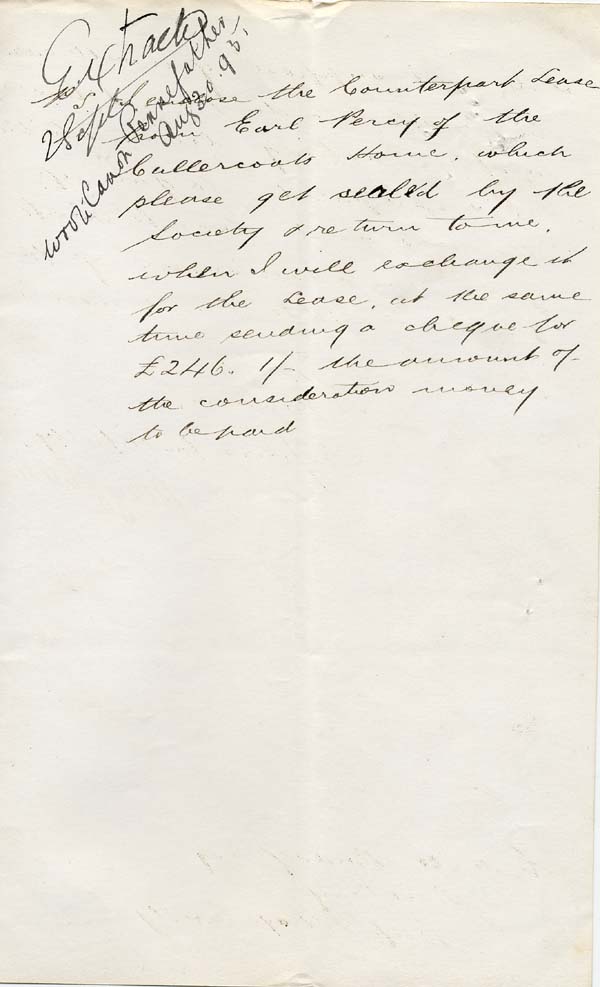 Extract
Sept
Wrote Canon Pennefather
Aug 30. 95.
I enclose the Counterpart Lease
from Earl Percy of the
Cullercoats Home, which
please get sealed by the
Society & return to me,
when I will exchange it
for the Lease, at the same
time sending a cheque for
£246. 1/- the amount of
the consideration money
to be paid